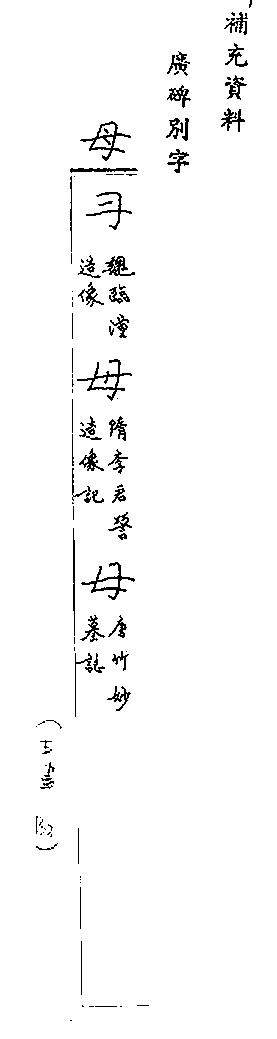 補充資料
廣碑別字
母
彐 魏臨潼造像
毋 隋李君䛒造像記
毋 唐竹妙墓誌
（五畫 132）